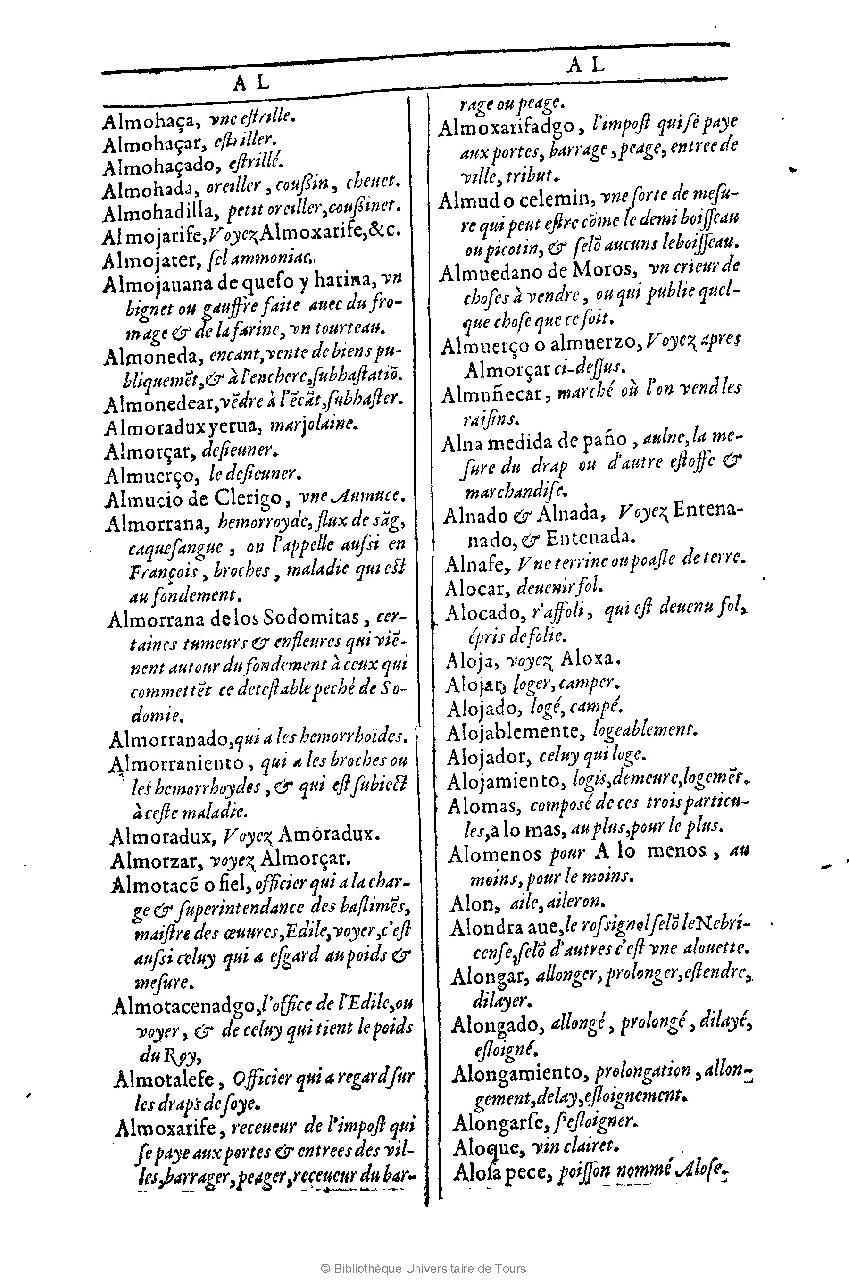 A L
Almohaça, vne eſtrille.
Almohaçar, eſtriller.
Almohaçado, eſtrillé.
Almohada, oreiller, couſsin, cheuet.
Almohadilla, petit oreiller, couſsinet.
Almojarife, Voyez Almoxarife, &c.
Almojater, ſel ammoniac.
Almojauana de queſo y harina, vn
bignet ou gauffre faite auec du fro-
mage & de la farine, vn tourteau.
Almoneda, encant, vente de biens pu-
bliquemẽt, & à l'enchere, ſubhaſtatiõ.
Almonedear, vẽdre à l'ẽcãt, ſubhaſter.
Almoradux yerua, marjolaine.
Almorçar, deſieuner.
Almuerço, le deſieuner.
Almucio de Clerigo, vne Aumuce.
Almorrana, hemorroyde, flux de sãg,
caqueſangue, on l'appelle auſsi en
François, broches, maladie qui eſt
au fondement.
Almorrana de los Sodomitas, cer-
taines tumeurs & enfleures qui viẽ-
nent autour du fondement à ceux qui
commettẽt ce deteſtable peché de So-
domie.
Almorranado, qui a les hemorrhoides.
Almorraniento, qui a les broches ou
les hemorrhoydes, & qui eſt ſubiect
à ceſte maladie.
Almoradux, Voyez Amoradux.
Almorzar, voyez Almorçar.
Almotacẽ o fiel, officier qui a la char-
ge & ſuperintendance des baſtimẽs,
maiſtre des œuures, Edile, voyer, c'eſt
auſsi celuy qui a eſgard au poids &
meſure.
Almotacenadgo, l'office de l'Edile, ou
voyer, & de celuy qui tient le poids
du Roy,
Almotalefe, Officier qui a regard ſur
les draps de ſoye.
Almoxarife, receueur de l'impoſt qui
ſe paye aux portes & entrees des vil-
les, barrager, peager, receueur du bar-
A L
rage ou peage.
Almoxarifadgo, l'impoſt qui ſe paye
aux portes, barrage, peage, entree de
ville, tribut.
Almud o celemin, vne ſorte de meſu-
re qui peut eſtre cõme le demi boiſſeau
ou picotin, & ſelõ aucuns le boiſſeau.
Almuedano de Moros, vn crieur de
choſes à vendre, ou qui publie quel-
que choſe que ce ſoit.
Almuerço o almuerzo, Voyez apres
Almorçar ci-deſſus.
Almuñecar, marché où l'on vend les
raiſins.
Alna medida de paño, aulne, la me-
ſure du drap ou d'autre eſtoffe &
marchandiſe.
Alnado & Alnada, Voyez Entena-
nado, & Entenada.
Alnafe, Vne terrine ou poaſle de terre.
Alocar, deuenir fol.
Alocado, r'affoli, qui eſt deuenu fol,
épris de folie.
Aloja, voyez Aloxa.
Alojar, loger, camper.
Alojado, logé, campé.
Alojablemente, logeablement.
Alojador, celuy qui loge.
Alojamiento, logis, demeure, logemẽt.
Alomas, composé de ces trois particu-
les, a lo mas, au plus, pour le plus.
Alomenos pour A lo menos, au
moins, pour le moins.
Alon, aile, aileron.
Alondra aue, le roſsignol ſelõ le Nebri-
cenſe, ſelõ d'autres c'eſt vne alouette.
Alongar, allonger, prolonger, eſtendre,
dilayer.
Alongado, allongé, prolongé, dilayé,
eſloigné.
Alongamiento, prolongation, allon-
gement, delay, eſloignement.
Alongarſe, ſ'eſloigner.
Aloque, vin clairet.
Aloſa pece, poiſſon nommé Aloſe.
© Bibliothèque Universitaire de Tours